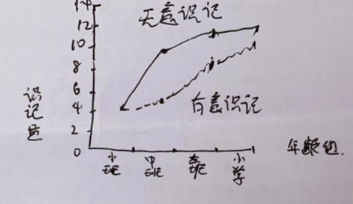 14
无意识记
12
10
8
6
4
2
0
识记量
有意识记
小班
中班
大班
小学
年龄组